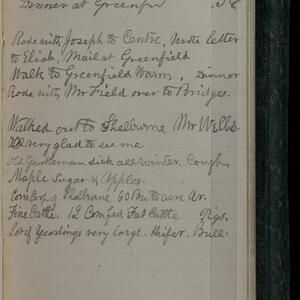 Dinner at Greenfield .58
Rode with Joseph to Centre, Wrote letter
to Eliab, Mail at Greenfield
Walk to Greenfield Warm, Dinner
Rode with Mr Field over to Bridge.
Walked out to Shelburne Mr Wells.
All very glad to see me
Old Gentleman sick all winter. Cough
Maple Sugar & Apples.
Corn Crop Shelburne 60 Bu to acre Av.
Fine Cattle. 12 Corn fed Fat Cattle Pigs.
Lot of Yearlings very large. Heifer, Bull.